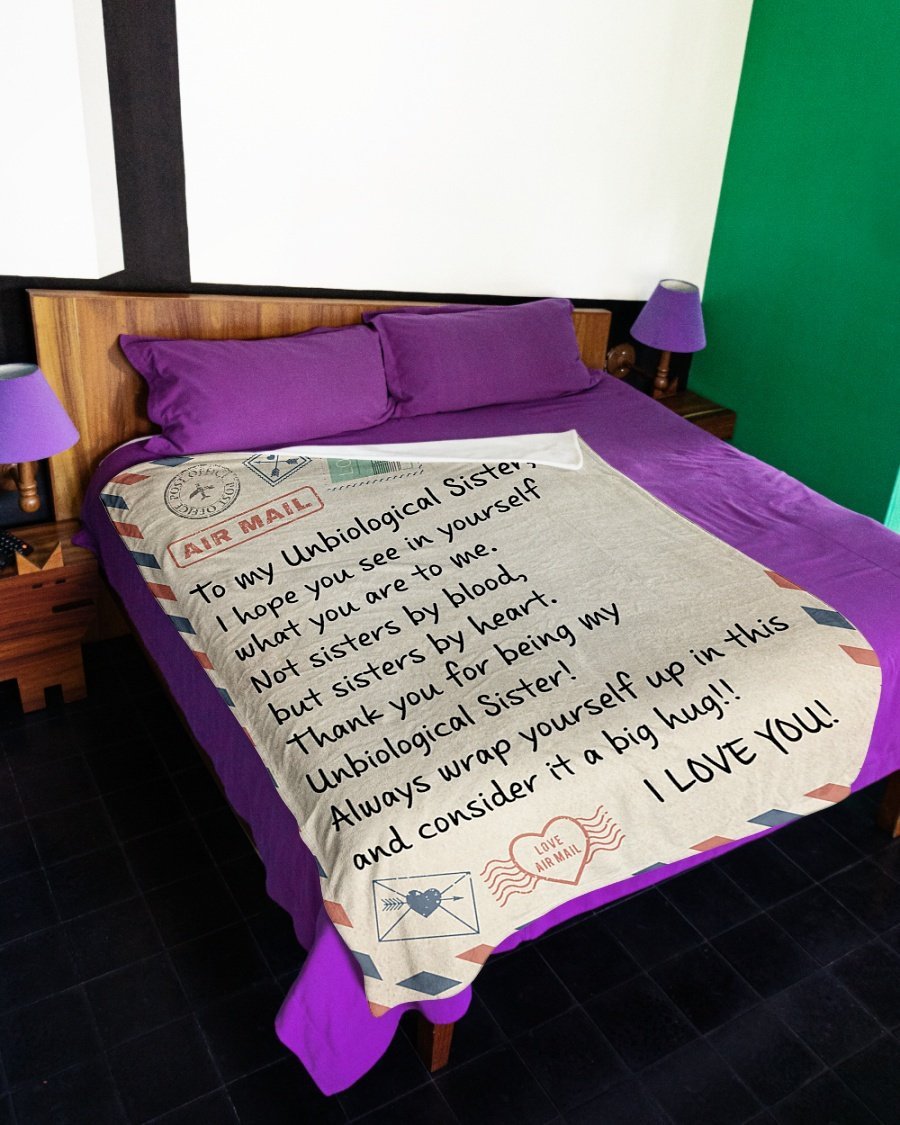 POST OFFICE POST OFFICE
AIR MAIL
To my Unbiological Sister,
I hope you see in yourself
what you are to me.
Not sisters by blood,
but sisters by heart.
Thank you for being my
Unbiological Sister!
Always wrap yourself up in this
and consider it a big hug!!
I LOVE YOU!
LOVE
AIR MAIL